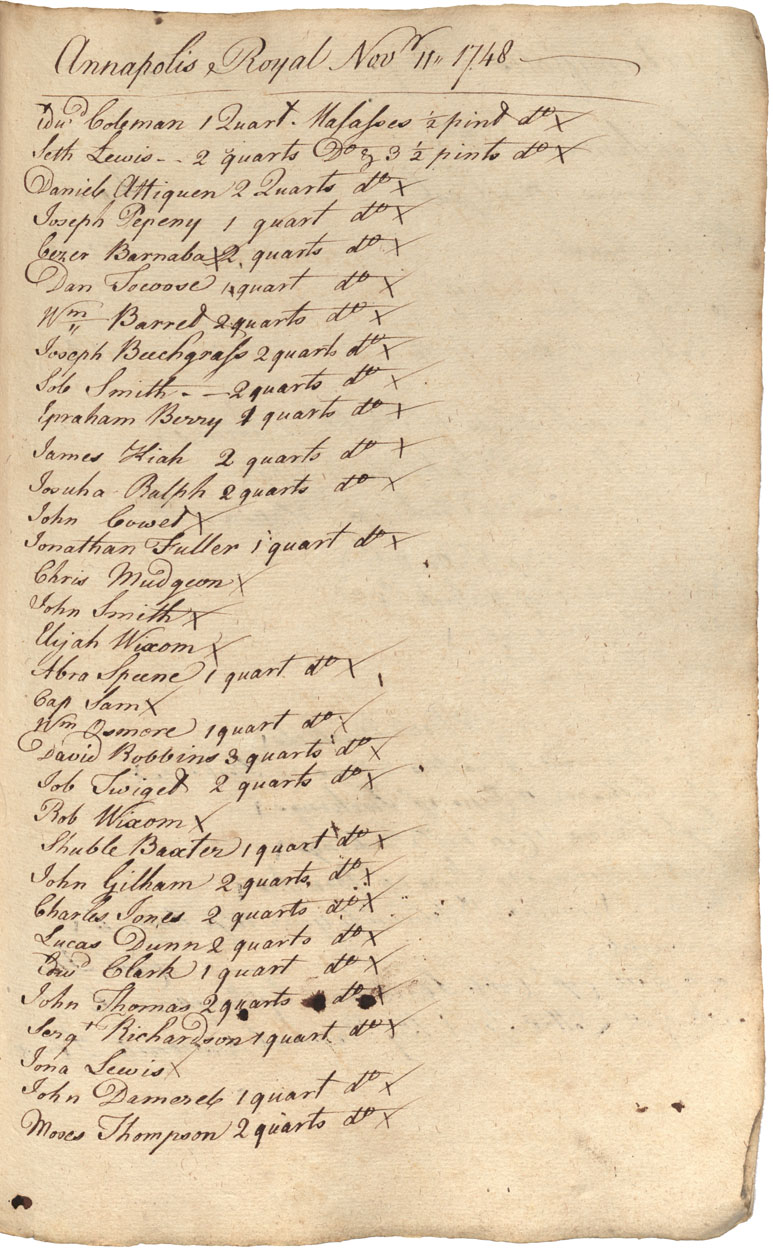 Annapolis Royal Novr 11 1748
Edwd Coleman 1 Quart Molasses ½ pint do X
Seth Lewis - - 2 quarts Do & 3 ½ pints do X
Daniel Attiquen 2 Quarts do X
Joseph Pepeny 1 quart do X
Cezer Barnaba X 2 quarts do X
Dan Socoose 1 quart do X
Wm Barret 2 quarts do X
Joseph Beechgrass 2 quarts do X
Job Smith - - 2 quarts do X
Epraham Berry 1 quarts do X
James Kiah 2 quarts do X
Josuha Ralph 2 quarts do X
John Cowet X
Jonathan Fuller 1 quart do X
Chris Mudgeon X
John Smith X
Elijah Wixom X
Abra Speene 1 quart do X
Cap Sam X
Wm Osmore 1 quart do X
David Robbins 3 quarts do X
Job Twiget 2 quarts do X
Rob Wixom X
Shuble Baxter 1 quart do X
John Gilham 2 quarts do X
Charles Jones 2 quarts do X
Lucas Dunn 2 quarts do X
Edwd Clark 1 quart do X
John Thomas 2 quarts do X
Sergt Richardson 1 quart do X
Jona Lewis X
John Damerel 1 quart do X
Moses Thompson 2 quarts do X